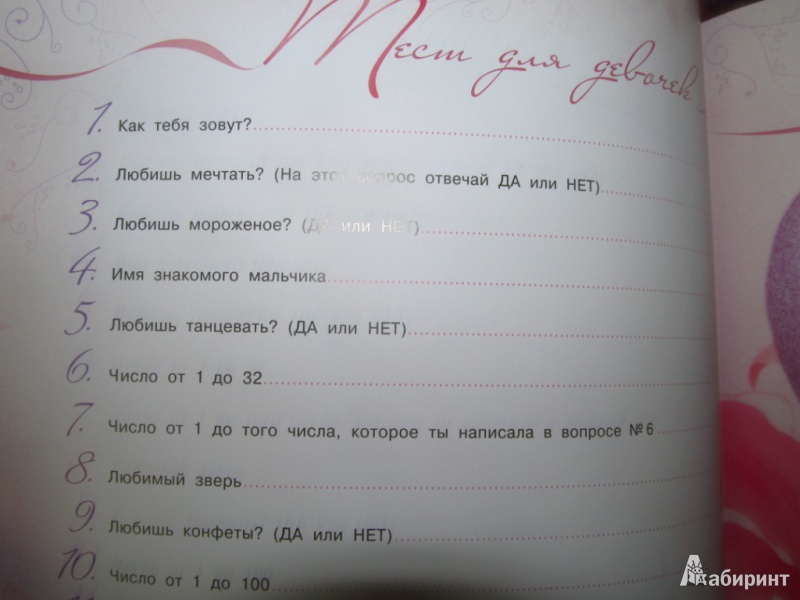 Тест для девочек
1. Как тебя зовут?
2. Любишь мечтать? (На этот вопрос отвечай ДА или НЕТ)
3. Любишь мороженое? (ДА или НЕТ)
4. Имя знакомого мальчика
5. Любишь танцевать? (ДА или НЕТ)
6. Число от 1 до 32
7. Число от 1 до того числа, которое ты написала в вопросе №6
8. Любимый зверь
9. Любишь конфеты? (ДА или НЕТ)
10. Число от 1 до 100
Лабиринт